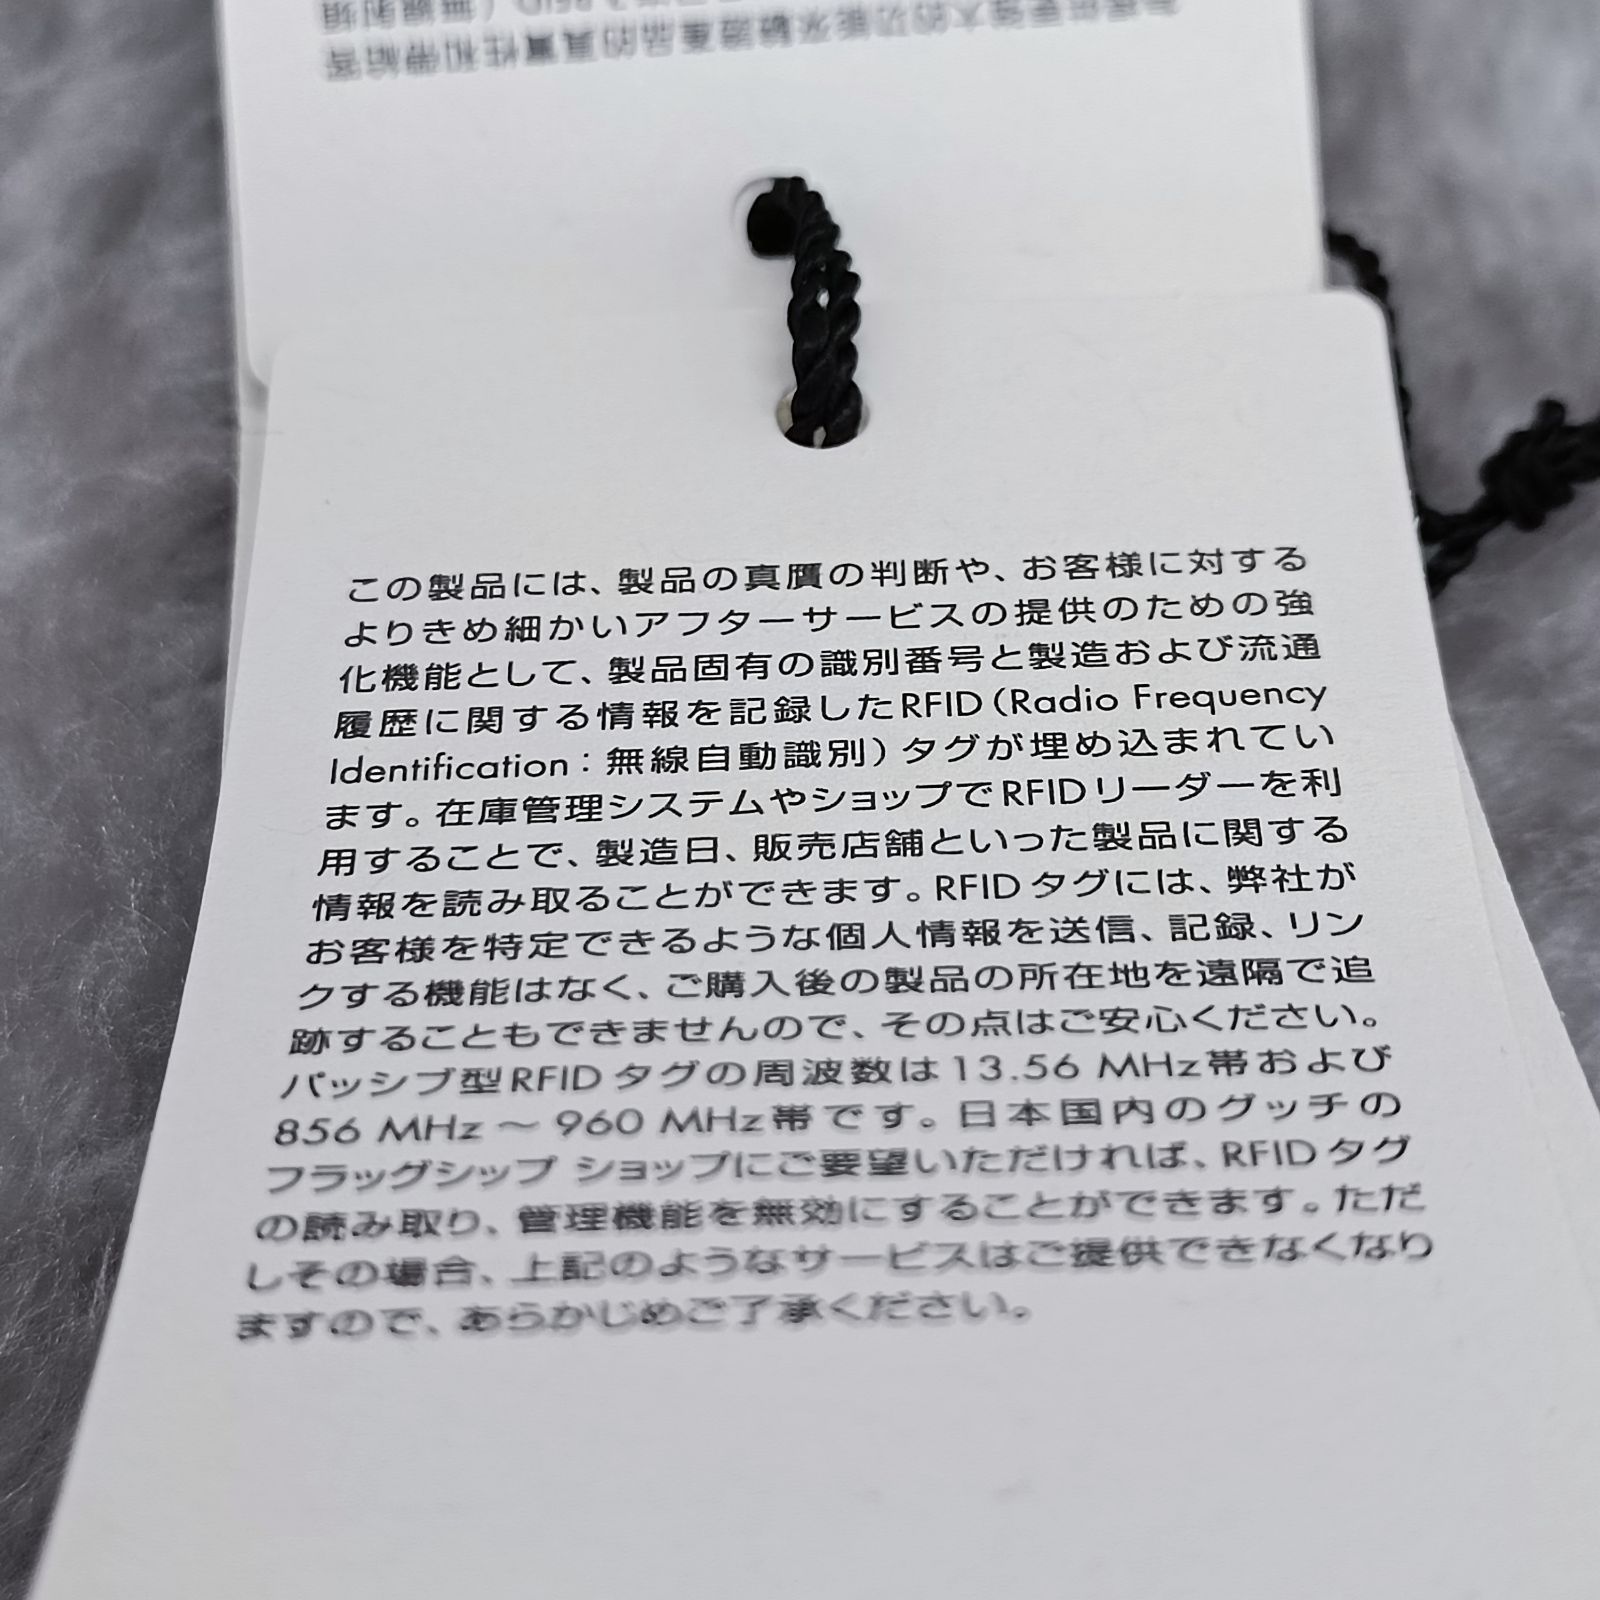 この製品には、製品の真贋の判断や、お客様に対する
よりきめ細かいアフターサービスの提供のための強
化機能として、製品固有の識別番号と製造および流通
履歴に関する情報を記録したRFID（Radio Frequency
Identification：無線自動識別）タグが埋め込まれてい
ます。在庫管理システムやショップでRFIDリーダーを利
用することで、製造日、販売店舗といった製品に関する
情報を読み取ることができます。RFIDタグには、弊社が
お客様を特定できるような個人情報を送信、記録、リン
クする機能はなく、ご購入後の製品の所在地を遠隔で追
跡することもできませんので、その点はご安心ください。
パッシブ型RFIDタグの周波数は13.56 MHz帯および
856 MHz～960 MHz帯です。日本国内のグッチの
フラッグシップ ショップにご要望いただければ、RFIDタグ
の読み取り、管理機能を無効にすることができます。ただ
しその場合、上記のようなサービスはご提供できなくなり
ますので、あらかじめご了承ください。